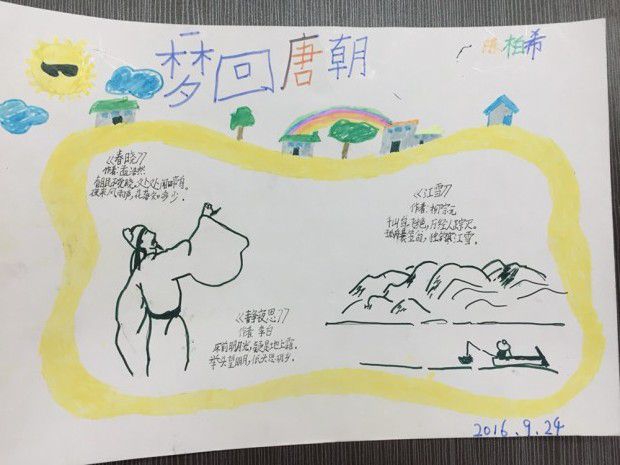 梦回唐朝
张柏希
《春晓》
作者:孟浩然
春眠不觉晓,处处闻啼鸟。
夜来风雨声,花落知多少。
《江雪》
作者:柳宗元
千山鸟飞绝,万径人踪灭。
孤舟蓑笠翁,独钓寒江雪。
《静夜思》
作者 李白
床前明月光,疑是地上霜。
举头望明月,低头思故乡。
2016.9.24